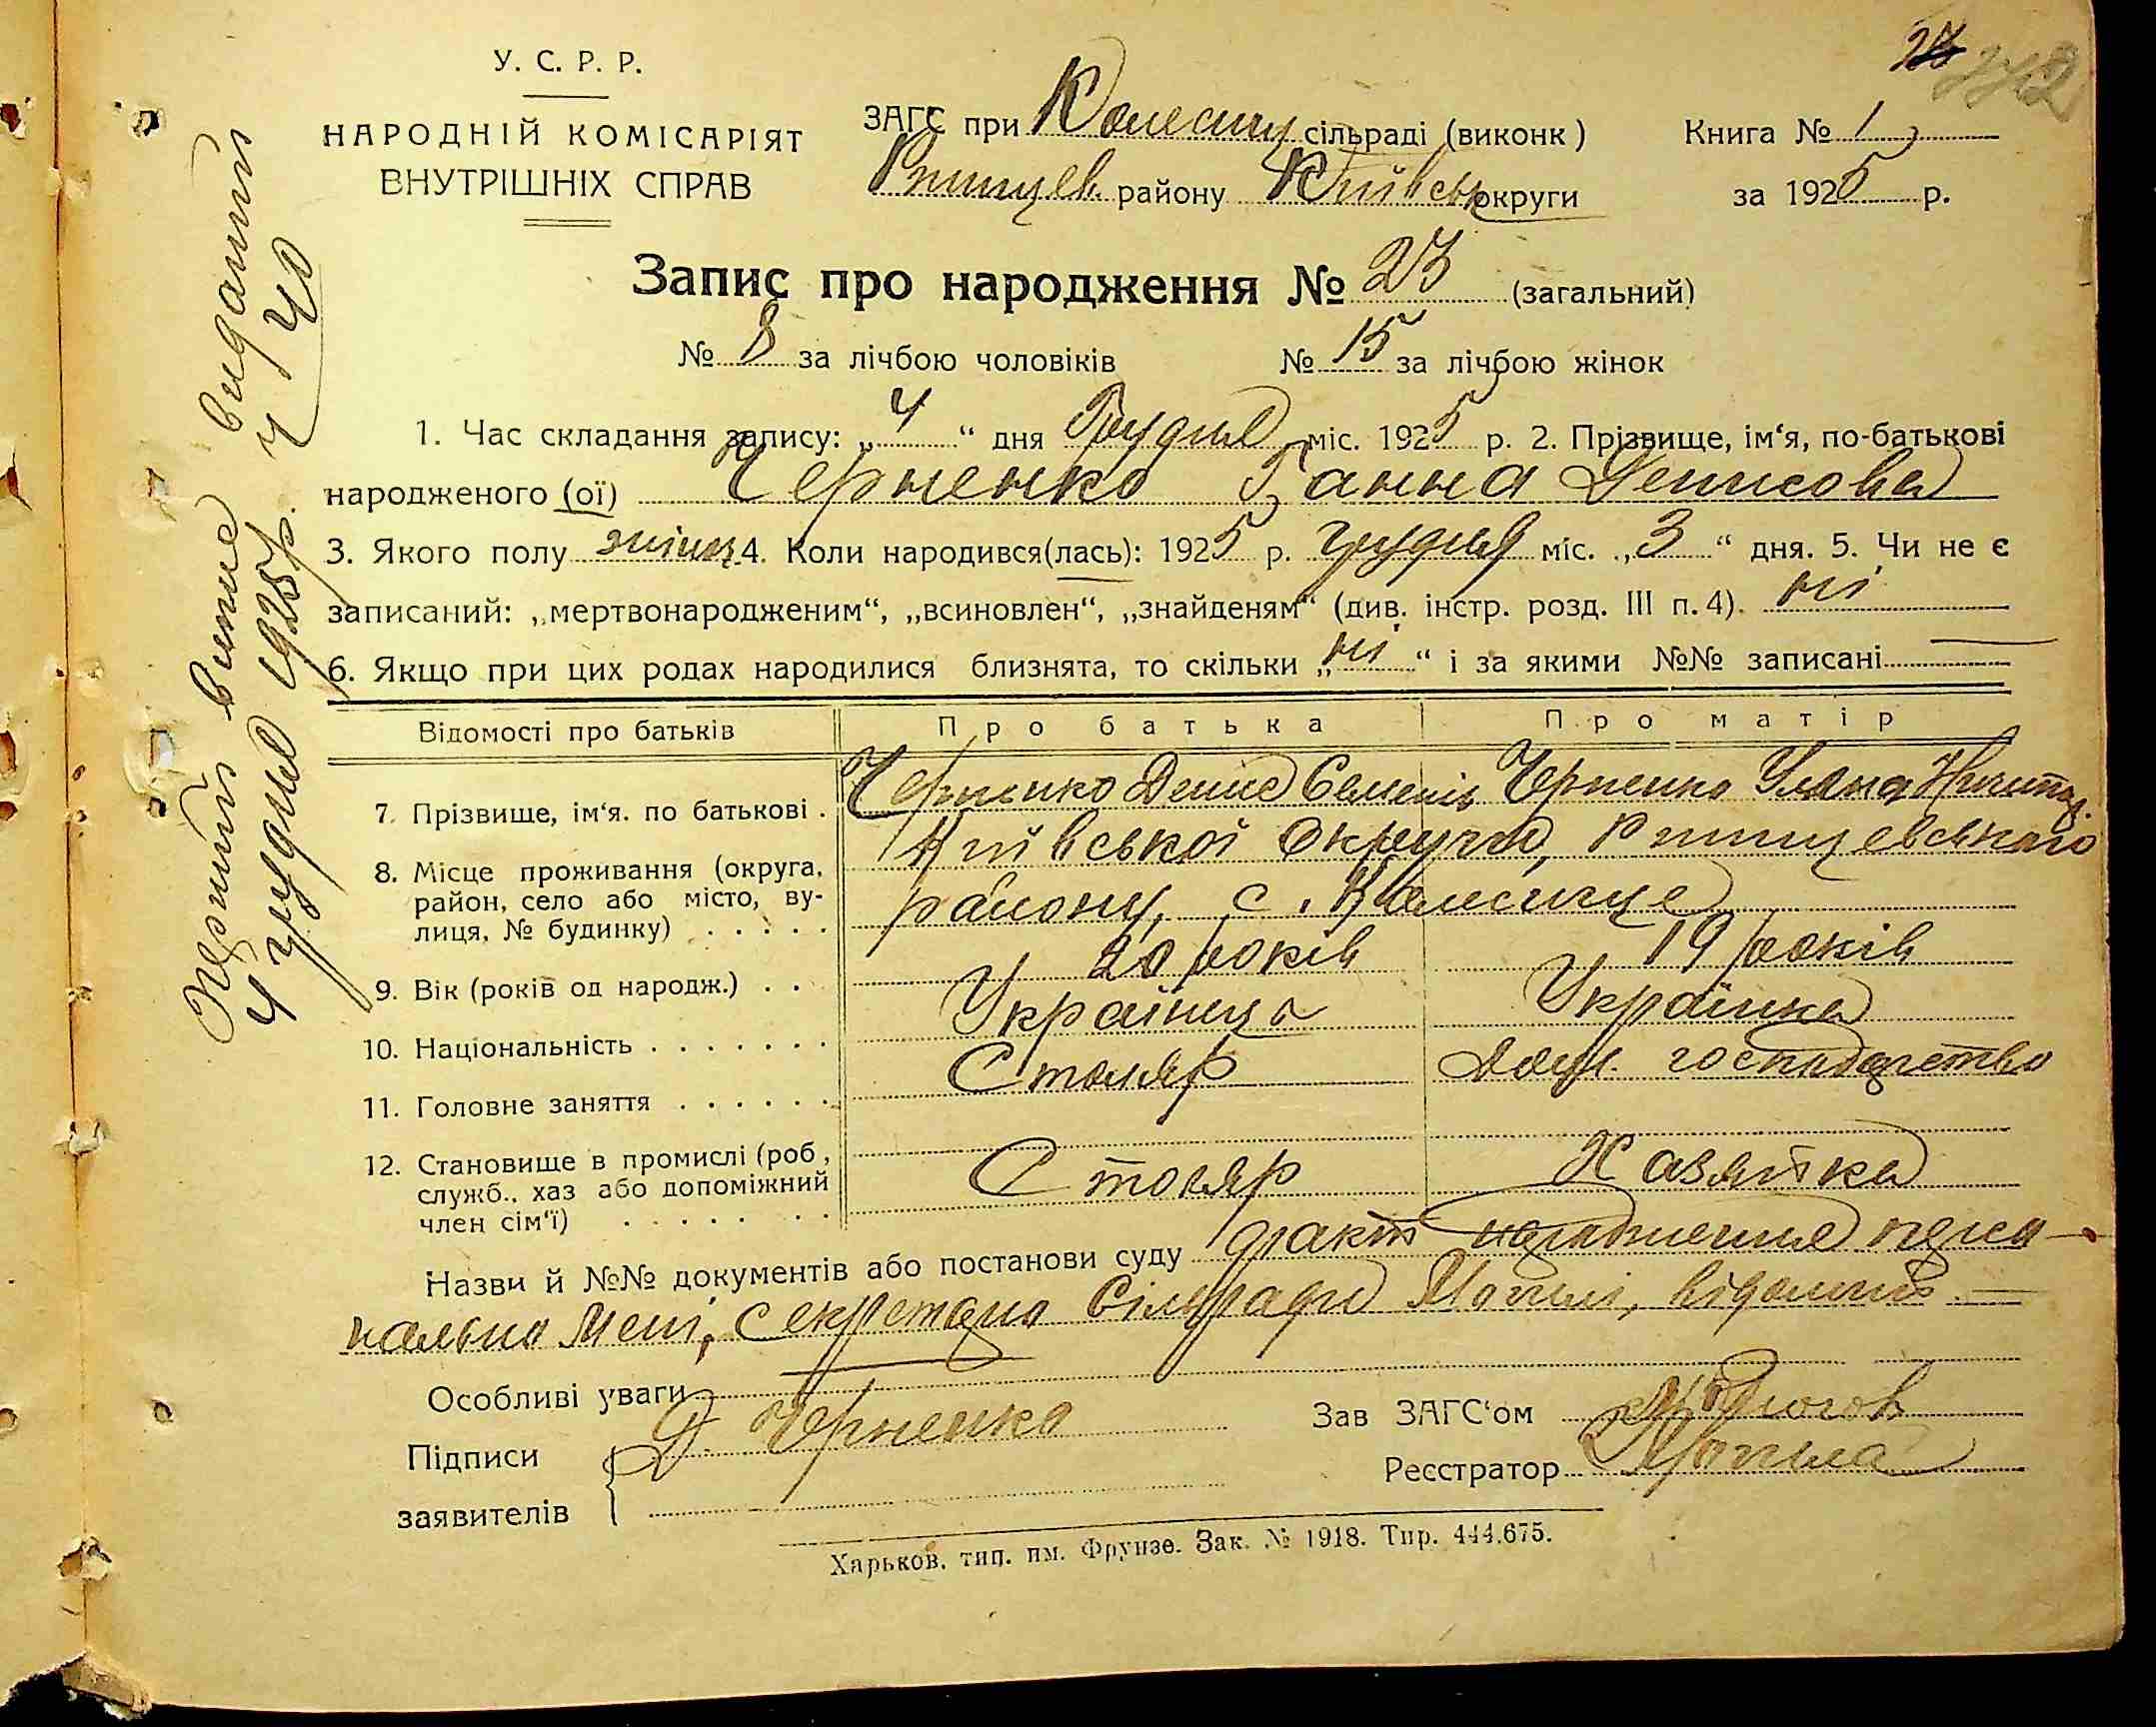 У. С. Р. Р.
НАРОДНІЙ КОМІСАРІЯТ
ВНУТРІШНІХ СПРАВ
ЗАГС при сільраді (виконк)
Ржищев. району Київськ округи
Книга № 1
за 1925 р.
Запис про народження № 23 (загальний)
№ 8 за лічбою чоловіків № 15 за лічбою жінок
1. Час складання запису: „4“ дня Грудня міс. 1925 р. 2. Прізвище, ім‘я, по-батькові
народженого (ої) Черненко Ганна Денисова
3. Якого полу жіноч. 4. Коли народився(лась): 1925 р. грудня міс. „3“ дня. 5. Чи не є
записаний: „мертвонародженим“, „всиновлен“, „знайденям“ (див. інстр. розд. III п. 4). ні
6. Якщо при цих родах народилися близнята, то скільки „ні“ і за якими №№ записані —
Відомості про батьків Про батька Про матір
7. Прізвище, ім‘я. по батькові . Черненко Денис Семенів Черненко Уляна
8. Місце проживання (округа, район, село або місто, вулиця, № будинку) . . . . . Київської Округи, Ржищевського
району, с.
9. Вік (років од народж.) . . 20 років 19 років
10. Національність . . . . . . . Українець Українка
11. Головне заняття . . . . . . Столяр Дом. господарство
12. Становище в промислі (роб, служб., хаз або допоміжний член сім‘ї) . . . . . . . Столяр Хазяйка
Назви й №№ документів або постанови суду факт народження персо-
нально мені, секретарю Сільради відомий —
Особливі уваги
Підписи
заявителів
Д. Черненко
Зав ЗАГС‘ом
Реєстратор
Харьков, тип. им. Фрунзе. Зак. № 1918. Тир. 444.675.
Перший витяг видатий
4 грудня 1925 р.